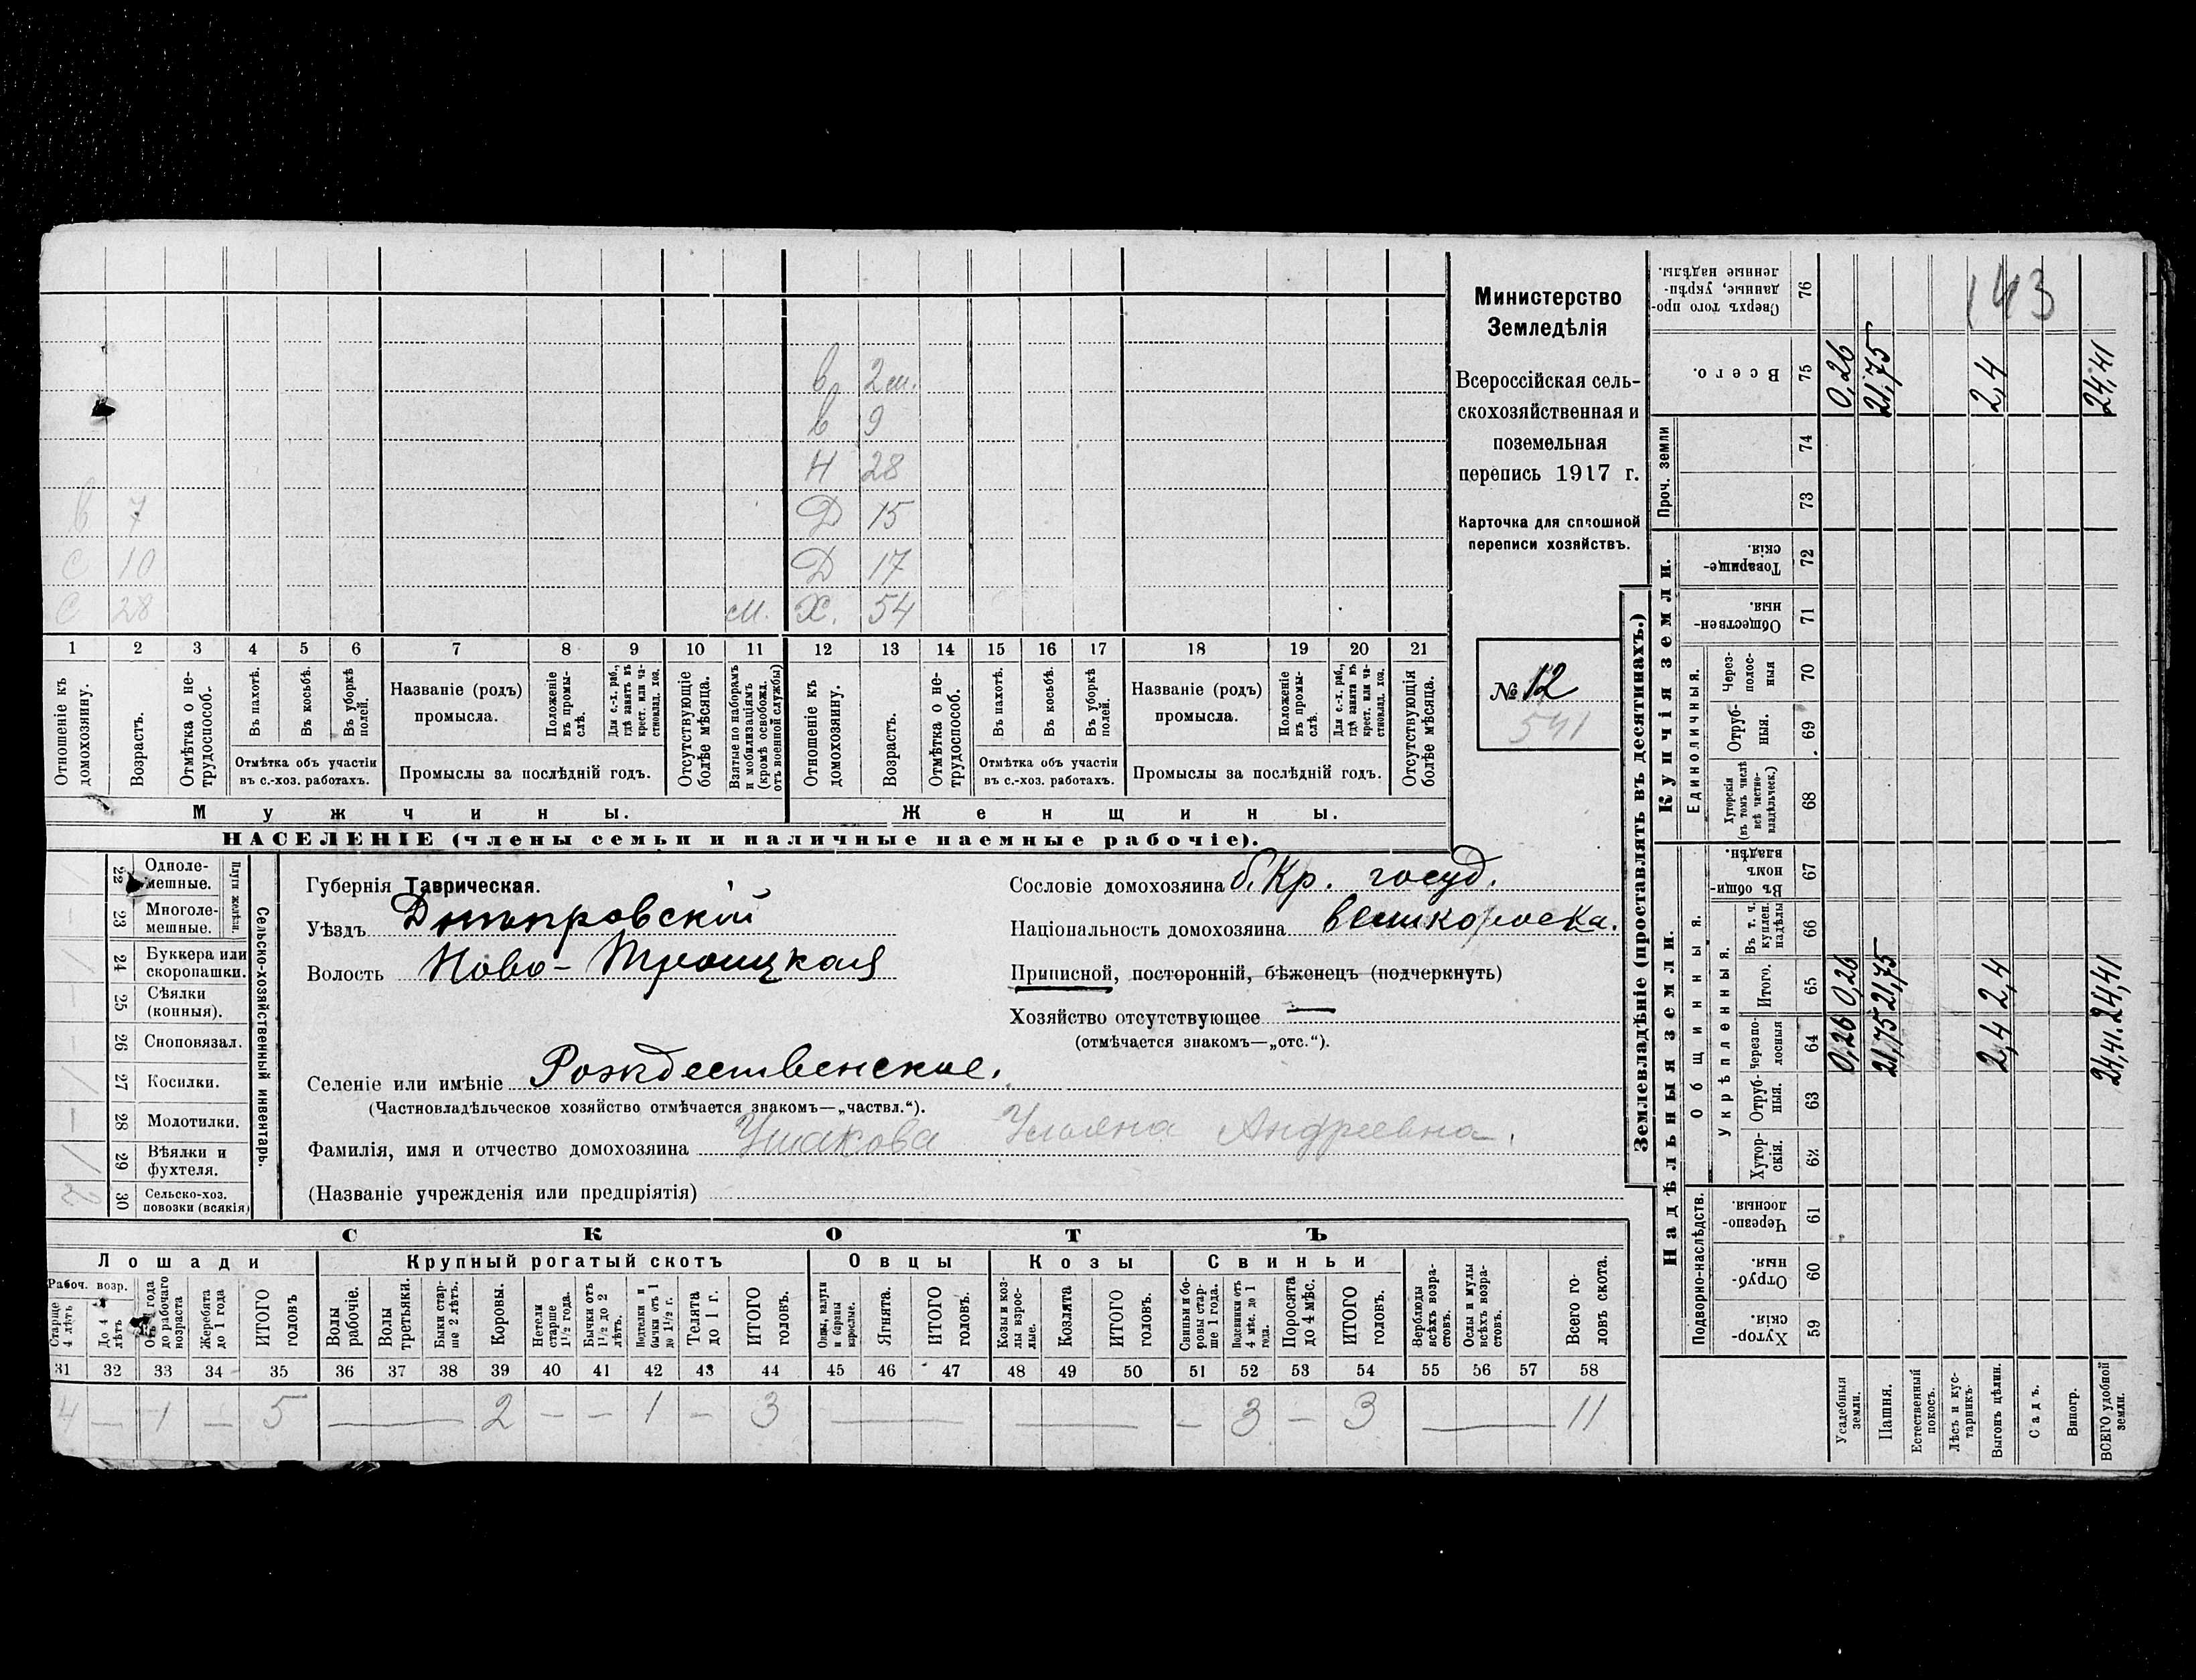 в 2 м.
в 9
Н 28
в 7 Д 15
с 10 Д 17
с 28 м. Х. 54
1 2 3 4 5 6 7 8 9 10 11 12 13 14 15 16 17 18 19 20 21
Отношеніе къ домохозяину.
Возрастъ.
Отмѣтка о не-трудоспособ.
Въ пахотѣ.
Въ косьбѣ.
Въ уборкѣ полей.
Отмѣтка объ участіи въ с.-хоз. работахъ.
Названіе (родъ) промысла.
Положеніе въ промы-слѣ.
Для с.-х. раб., гдѣ занятъ въ крест. или ча-стновлад. хоз.
Промыслы за послѣдній годъ.
Отсутствующіе болѣе мѣсяца.
Взятые по наборамъ и мобилизаціямъ (кромѣ освобожд. отъ военной службы)
Отношеніе къ домохозяину.
Возрастъ.
Отмѣтка о не-трудоспособ.
Въ пахотѣ.
Въ косьбѣ.
Въ уборкѣ полей.
Отмѣтка объ участіи въ с.-хоз. работахъ.
Названіе (родъ) промысла.
Положеніе въ промы-слѣ.
Для с.-х. раб., гдѣ занята въ крест. или ча-стновлад. хоз.
Промыслы за послѣдній годъ.
Отсутствующія болѣе мѣсяца.
Мужчины. Женщины.
НАСЕЛЕНІЕ (члены семьи и наличные наемные рабочіе).
Министерство
Земледѣлія
Всероссійская сель-
скохозяйственная и
поземельная
перепись 1917 г.
Карточка для сплошной
переписи хозяйствъ.
№ 12
541
Сельско-хозяйственный инвентарь.
Плуги желѣз.
22 Одноле-мешные. /
23 Многоле-мешные. –
24 Буккера или скоропашки. /
25 Сѣялки (конныя). –
26 Сноповязал. –
27 Косилки. /
28 Молотилки. –
29 Вѣялки и фухтеля. /
30 Сельско-хоз. повозки (всякія) 2
Губернія Таврическая.
Уѣздъ Днѣпровскій
Волость Ново-Троицкая
Селеніе или имѣніе Рождественское.
(Частновладѣльческое хозяйство отмѣчается знакомъ—„частвл.“).
Фамилія, имя и отчество домохозяина Ушакова Ульяна Андреевна.
(Названіе учрежденія или предпріятія)
Сословіе домохозяина б. Кр. госуд.
Національность домохозяина великоросска.
Приписной, посторонній, бѣженецъ (подчеркнуть)
Хозяйство отсутствующее —
(отмѣчается знакомъ—„отс.“).
СКОТЪ
Лошади Крупный рогатый скотъ Овцы Козы Свиньи
Рабоч. возр.
Старше 4 лѣтъ
До 4 лѣтъ
От 1 года до рабочаго возраста
Жеребята до 1 года
ИТОГО головъ
Волы рабочіе.
Волы третьяки.
Быки стар-ше 2 лѣтъ.
Коровы.
Нетели старше 1½ года.
Бычки отъ 1½ до 2 лѣтъ.
Подтелки и бычки отъ 1 до 1½ г.
Телята до 1 г.
ИТОГО головъ.
Овцы, валухи и бараны взрослые.
Ягнята.
ИТОГО головъ.
Козы и коз-лы взрос-лые.
Козлята
ИТОГО головъ.
Свиньи и бо-ровы стар-ше 1 года.
Подсвинки отъ 4 мѣс. до 1 года.
Поросята до 4 мѣс.
ИТОГО головъ.
Верблюды всѣхъ возра-стовъ.
Ослы и мулы всѣхъ возра-стовъ.
Всего го-ловъ скота.
31 32 33 34 35 36 37 38 39 40 41 42 43 44 45 46 47 48 49 50 51 52 53 54 55 56 57 58
4 – 1 – 5 — 2 – – 1 – 3 — — – 3 – 3 — 11
Землевладѣніе (проставлять въ десятинахъ.)
Надѣльныя земли.
Купчія земли.
Проч. земли
Подворно-наслѣдств.
Общинныя.
Укрѣпленныя.
Единоличныя.
Хутор-скія. 59
Отруб-ныя. 60
Черезпо-лосныя. 61
Хутор-скія. 62
Отруб-ныя. 63
Черезпо-лосныя 64
Итого. 65
Въ т. ч. куплен. надѣлы 66
Въ общин-номъ владѣн. 67
Хуторскія (въ томъ числѣ всѣ частно-владѣльческ.) 68
Отруб-ныя. 69
Через-полос-ныя 70
Обществен-ныя. 71
Товарище-скія. 72
73
74
Всего. 75
Сверхъ того про-данные, укрѣп-ленные надѣлы. 76
143
Усадебныя земли. 0,26 0,26 0,26
Пашня. 21,75 21,75 21,75
Естественный покосъ.
Лѣсъ и кус-тарникъ.
Выгонъ цѣлин. 2,4 2,4 2,4
Садъ.
Виногр.
ВСЕГО удобной земли. 24,41. 24,41 24,41